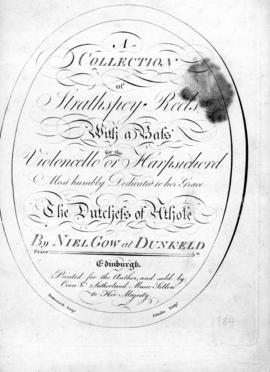 A
COLLECTION
of
Strathspey Reels
With a Bass
for the
Violoncello or Harpsichord
Most humbly Dedicated to her Grace
The Dutchess of Athole
By NIEL GOW at DUNKELD
Price
Edinburgh.
Printed for the Author, and sold by
Corri & Sutherland Music Sellers
to Her Majesty